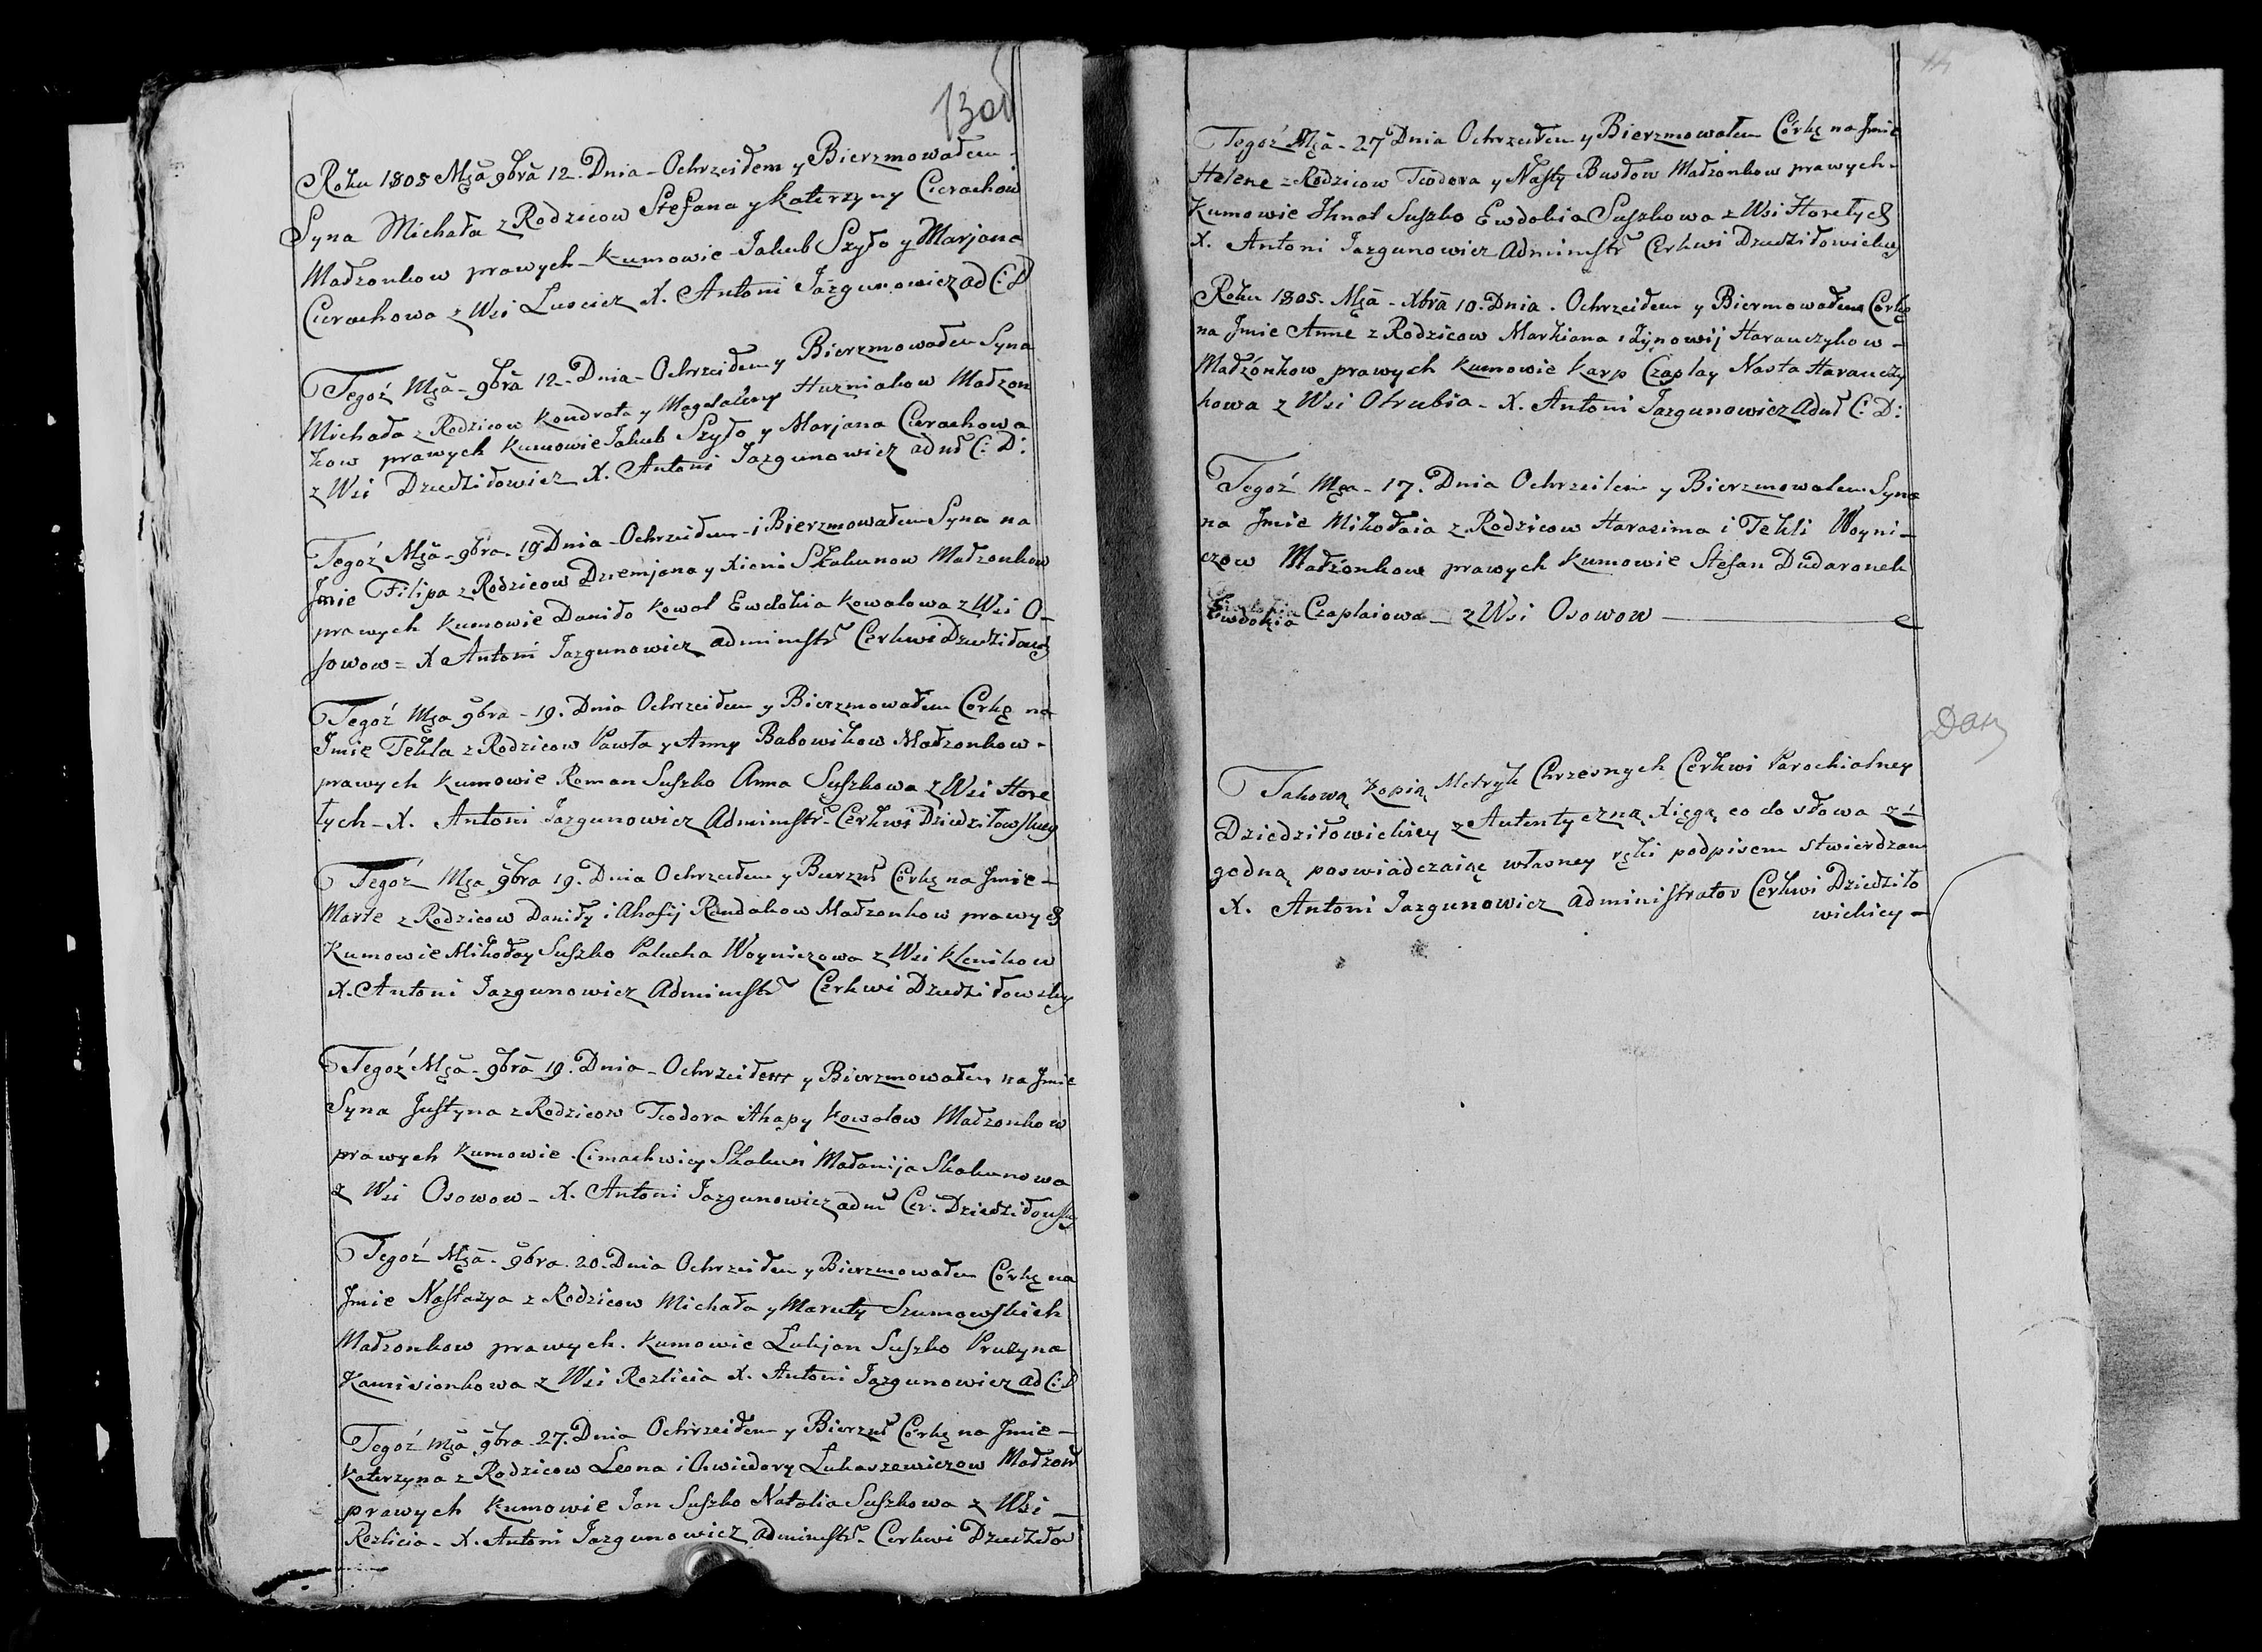 13об
Roku 1805 Mcã 9brã 12. Dnia - Ochrzciłem y Bierzmowałem -
Syna Michała z Rodzicow Stefana y Katerzyny Cierachow
Małzonkow prawych - Kumowie Jakub Szyło y Marjana
Cierachowa z Wsi Łuscicz X. Antoni Jazgunowicz ad C: D
Tegoż Mcã - 9brã 12. Dnia - Ochrzciłem y Bierzmowałem Syna
Michała z Rodzicow Kondrata y Magdaleny Huzniakow Małzon
kow prawych Kumowie Jakub Szyło y Marjana Cierachowa
z Wsi Dziedziłowicz X. Antoni Jazgunowicz adm C: D:
Tegoż Mcã - 9bra - 19 Dnia - Ochrzciłem - i Bierzmowałem Syna na
Jmie Filipa z Rodzicow Dziemjana y Xieni Skakunow Małzonkow
prawych Kumowie Daniło Kowal Ewdokia Kowalowa z Wsi O-
sowow = X Antoni Jazgunowicz administr Cerkwi Dziedziłows
Tegoż Mca 9bra - 19. Dnia Ochrzciłem y Bierzmowałem Corkę na
Jmie Tekla z Rodzicow Pawła y Anny Babowikow Małzonkow -
prawych Kumowie Roman Suszko Anna Suszkowa z Wsi Hore
łych - X. Antoni Jazgunowicz Administr - Cerkwi Dziedziłowskiey
Tegoż Mca 9bra 19. Dnia Ochrzciłem y Bierzm Córkę na Jmie -
Marte z Rodzicow Daniły i Ahafij Rendakow Małzonkow prawych
Kumowie Mikołay Suszko Palucha Woyniczowa z Wsi Klenikow
X. Antoni Jazgunowicz Administr Cerkwi Dziedziłowskiey
Tegoż Mcã - 9brã 19. Dnia - Ochrzciłem y Bierzmowałem na Jmie
Syna Justyna z Rodzicow Teodora i Ahapy Kowalow Małzonkow
prawych Kumowie Cimachwiey Skakun Małanija Skakunowa
z Wsi Osowow - X. Antoni Jazgunowicz adm Cer. Dziedziłowskiey
Tegoż Mcã - 9bra - 20. Dnia Ochrzciłem y Bierzmowałem Córkę na
Jmie Nastazya z Rodzicow Michała y Maruty Szumowskich
Małzonkow prawych. Kumowie Łukjan Suszko Pruzyna
Kamisionkowa z Wsi Rozlicia X. Antoni Jazgunowicz ad C: D
Tegoż Mcã 9bra - 27. Dnia Ochrzciłem y Bierzm Córkę na Jmie -
Katerzyna z Rodzicow Leona i Chwiedory Łukaszewiczow Małzow
prawych Kumowie Jan Suszko Natalia Suszkowa z Wsi -
Rozlicia - X. Antoni Jazgunowicz administr - Cerkwi Dziedziłow
14
Tegoż Mcã - 27 Dnia Ochrzciłem y Bierzmowałem Córkę na Jmie
Helene z Rodzicow Teodora y Nasty Busłow Małzonkow prawych -
Kumowie Ihnat Suszko Ewdokia Suszkowa z Wsi Horełych
X. Antoni Jazgunowicz Administr Cerkwi Dziedziłowickiey
Roku 1805. Mcã - Xbrã 10. Dnia. Ochrzciłem y Biermowałem Córkę
na Jmie Anne z Rodzicow Markiana i Zynowij Haranczykow -
Małżónkow prawych Kumowie Karp Czaplay Nasta Haranczy
kowa z Wsi Otrubia - X. Antoni Jazgunowicz Adm C: D:
Tegoż Mca - 17. Dnia Ochrzciłem y Bierzmowałem Syna
na Jmie Mikołaia z Rodzicow Harasima i Tekli Woyni-
czow Małżonkow prawych Kumowie Stefan Dudaronek
Ewdokia Czaplaiowa - z Wsi Osowow
Takową Kopią Metryk Chrzesnych Cerkwi Parochialney
Dziedziłowickiey z Autentyczną Xięgą co do słowa z-
godną poswiadczaiąc własney ręki podpisem stwierdzam
X. Antoni Jazgunowicz Administrator Cerkwi Dziedziło
wickiey -